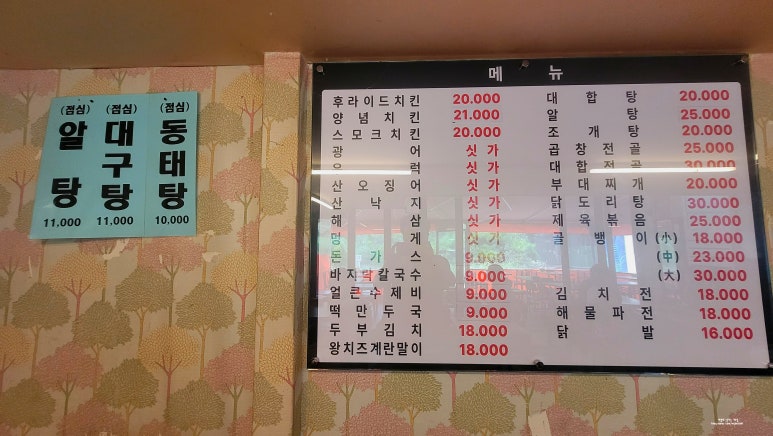 (점심)
알
탕
11,000
(점심)
대
구
탕
11,000
(점심)
동
태
탕
10,000
메 뉴
후라이드치킨 20.000
양념치킨 21.000
스모크치킨 20.000
광어 싯가
우럭 싯가
산오징어 싯가
산낙지 싯가
해삼 싯가
멍게 싯가
돈가스 9.000
바지락칼국수 9.000
얼큰수제비 9.000
떡만두국 9.000
두부김치 18.000
왕치즈계란말이 18.000
대합탕 20.000
알탕 25.000
조개탕 20.000
곱창전골 25.000
대합전골 30.000
부대찌개 20.000
닭도리탕 30.000
제육볶음 25.000
골뱅이 (小) 18.000
(中) 23.000
(大) 30.000
김치전 18.000
해물파전 18.000
닭발 16.000